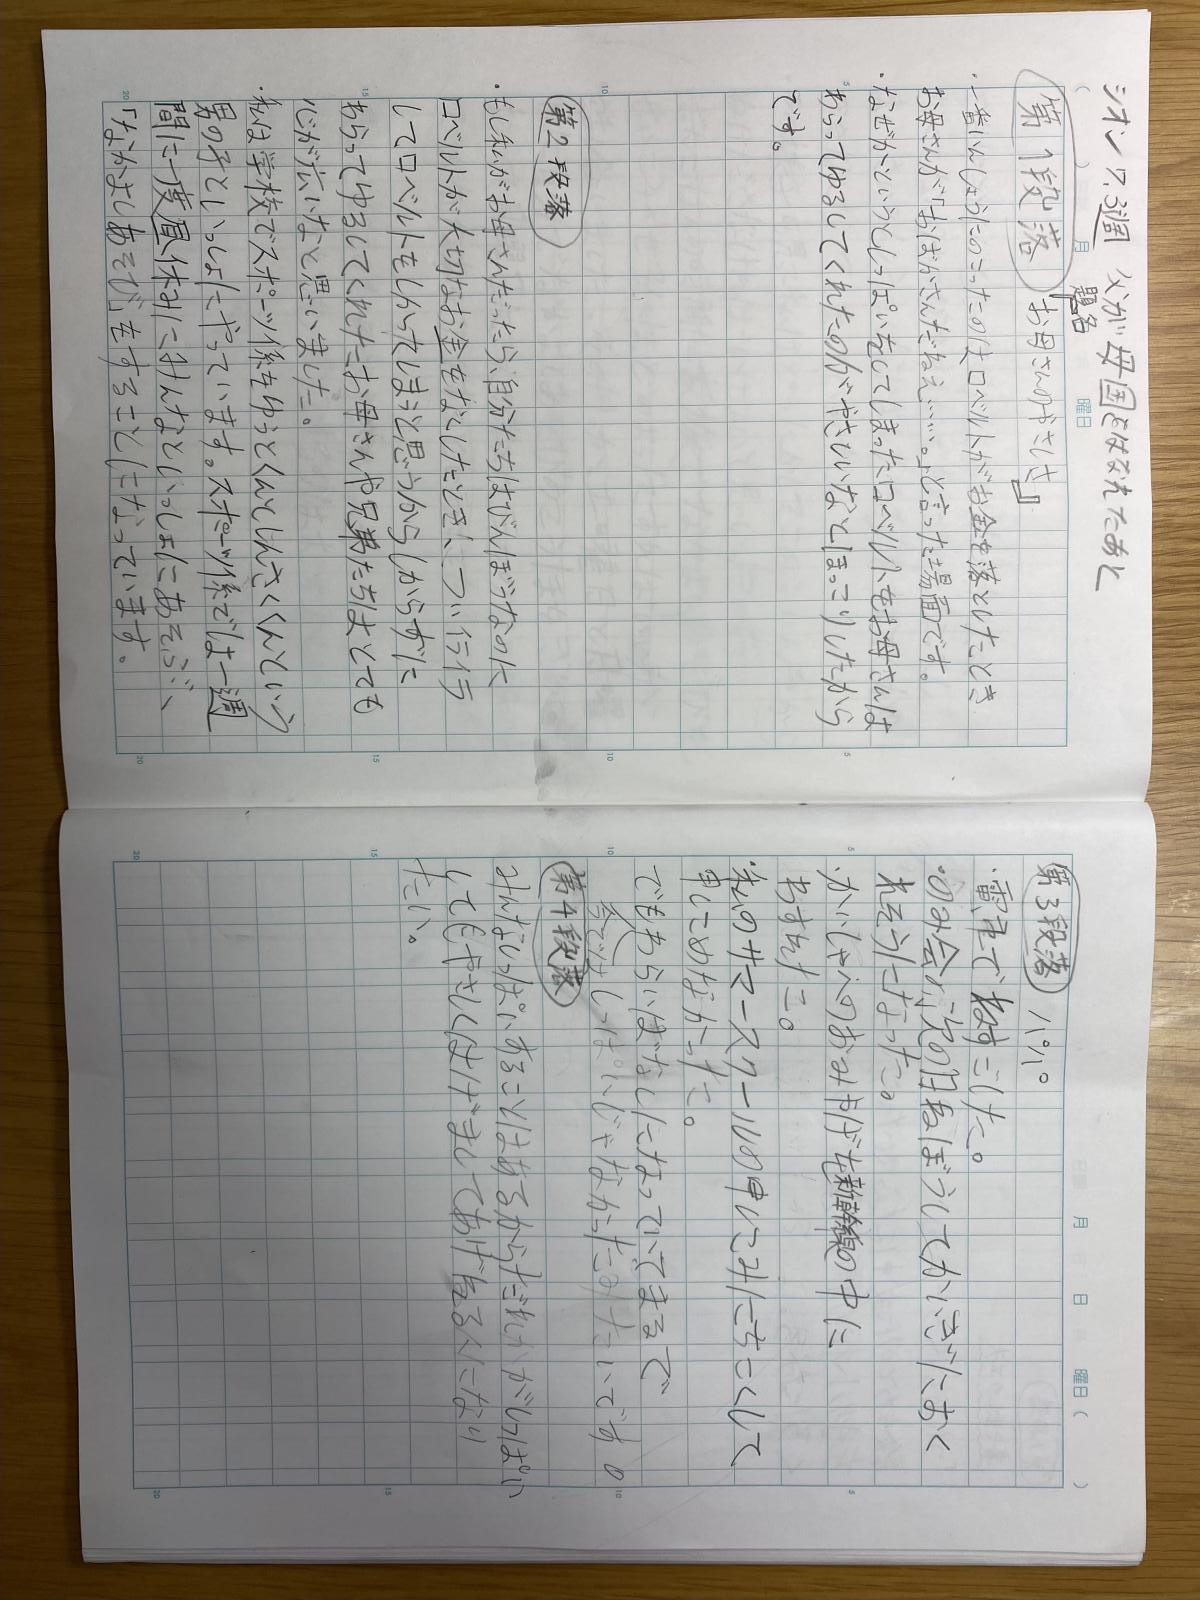 シオン 7.3週 父が母国をはなれたあと
題名
第1段落 お母さんのやさしさ』
・一番いんしょうにのこったのはロベルトがお金を落としたとき
お母さんが「おばかさんだねえ……。」と言った場面です。
・なぜかというとしっぱいをしてしまったロベルトをお母さんは
わらってゆるしてくれたのがやさしいなとほっこりしたから
です。
第2段落
・もし私がお母さんだったら自分たちはびんぼうなのに
ロベルトが大切なお金をなくしたとき、つい
してロベルトをしかってしまうと思うからしからずに
わらってゆるしてくれたお母さんや兄弟たちはとても
心が広いなと思いました。
・私は学校でスポーツ係をゆうとくんとしんさくくんという
男の子といっしょにやっています。スポーツ係では一週
間に一度昼休みにみんなといっしょにあそぶ、
「なかよしあそび」をすることになっています。
第3段落 パパ。
・電車でねすごした。
・のみ会の次の日ねぼうしてかいぎにおく
れそうになった。
・かいしゃへのおみやげを新幹線の中に
わすれた。
・私のサマースクールの申しこみにちこくして
申しこめなかった。
でもわらいばなしになっていてまるで
しっぱいじゃなかったみたいです。
第4段落
みんなしっぱいすることはあるからだれかがしっぱい
してもやさしくはげましてあげる人になり
たい。